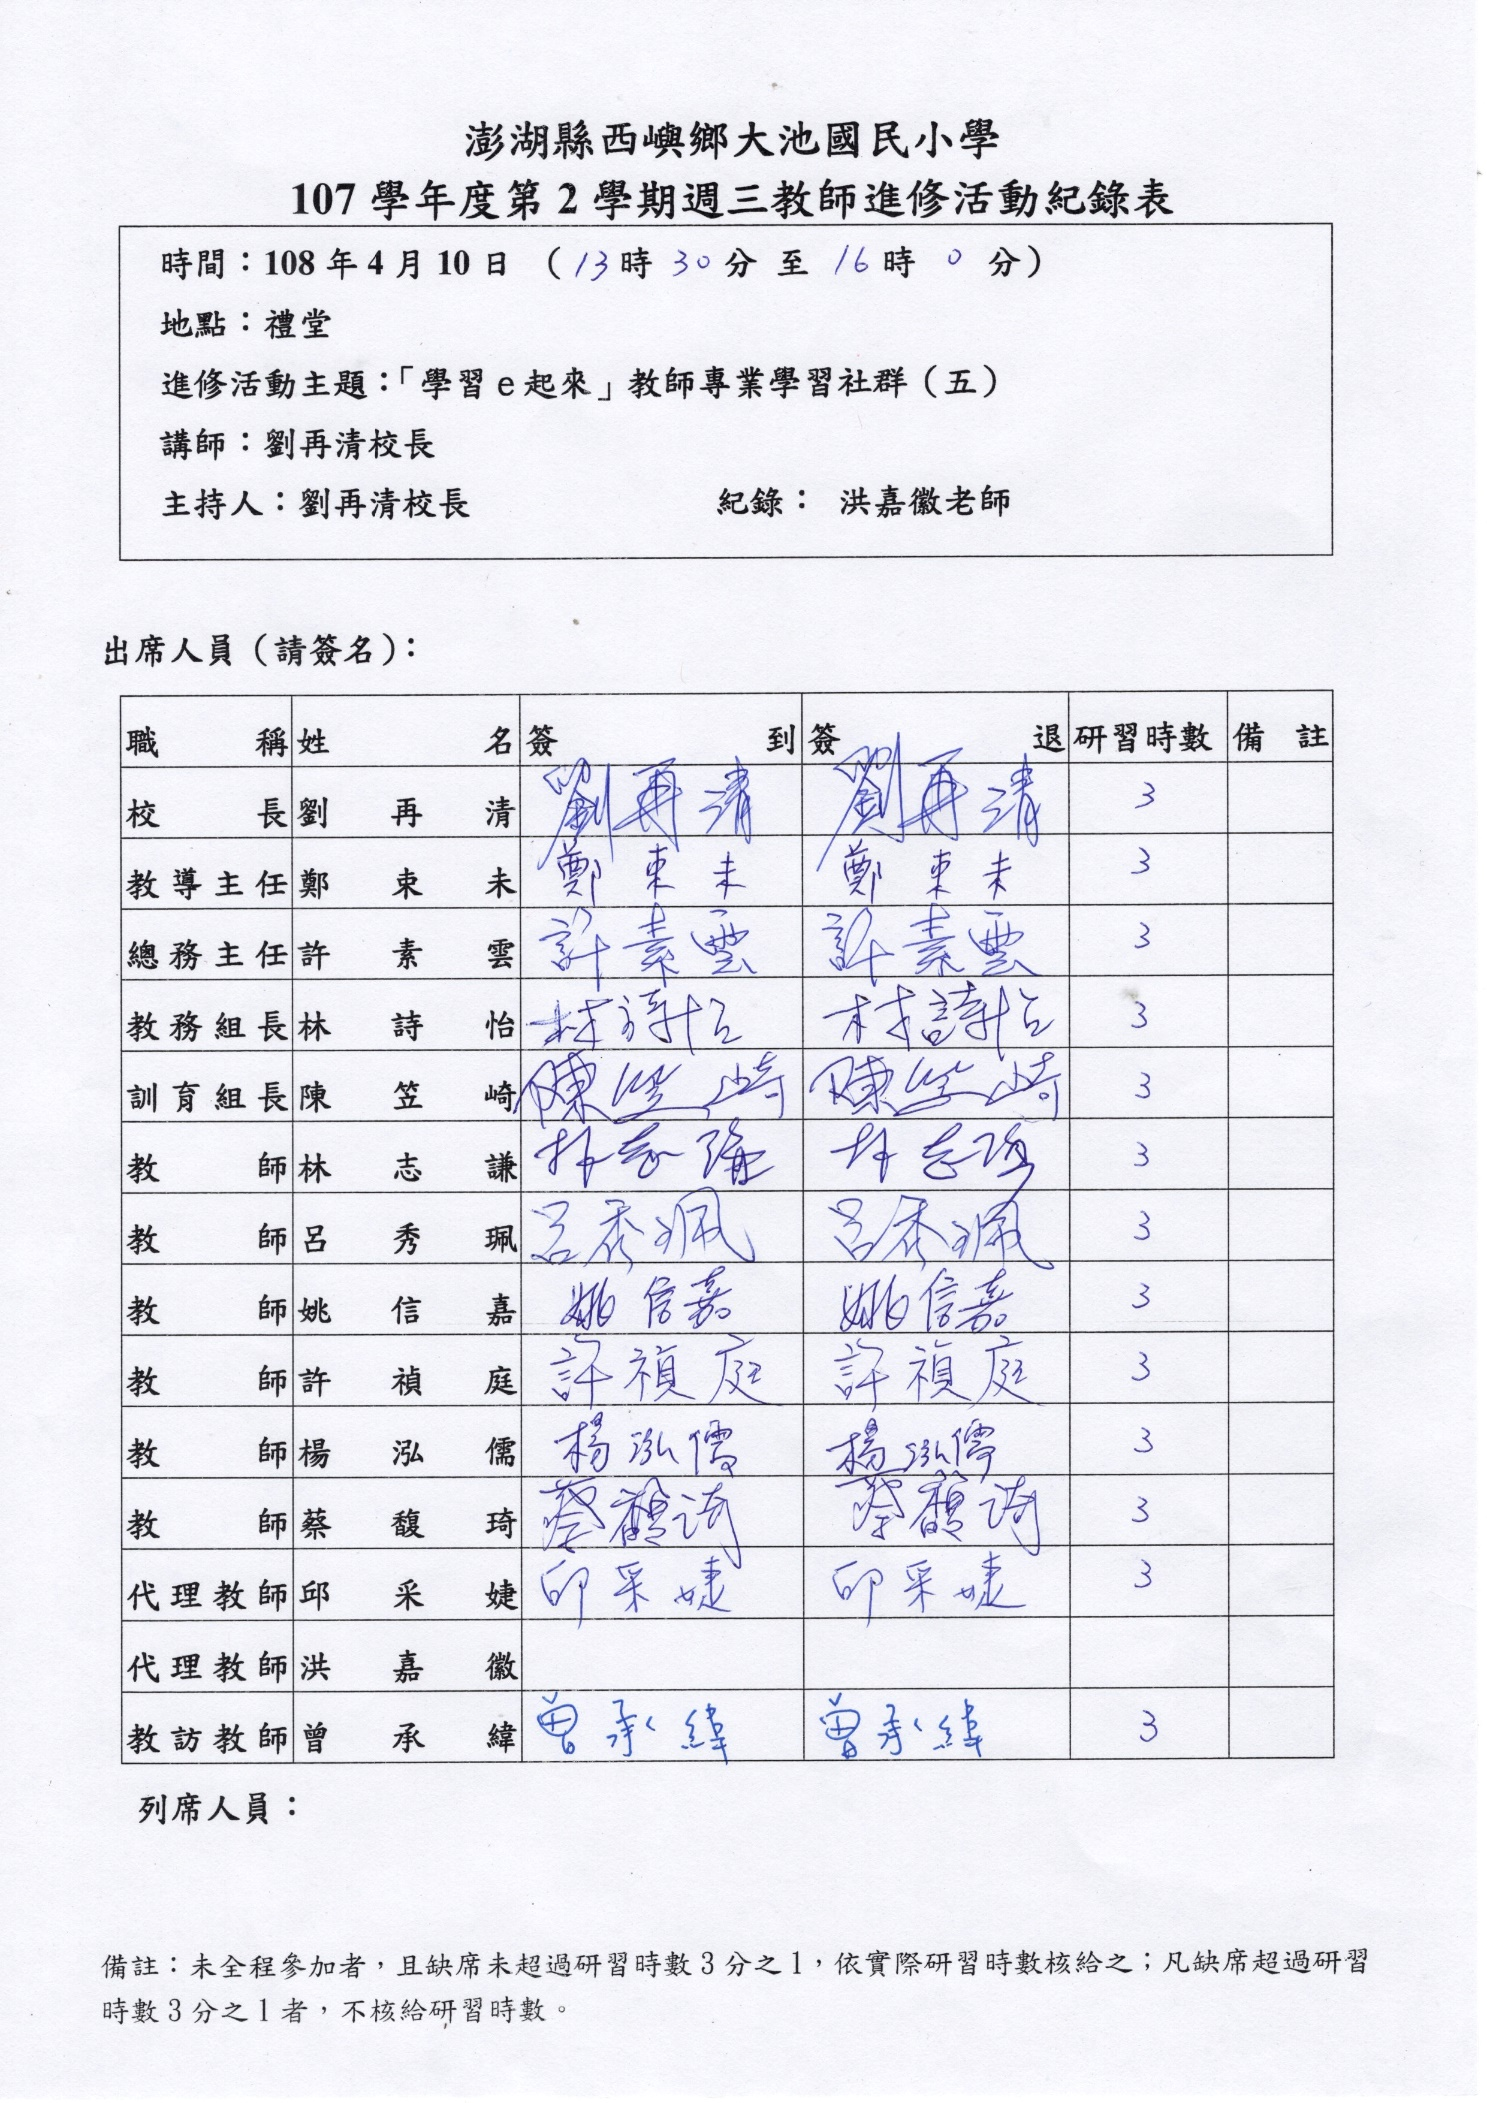 澎湖縣西嶼鄉大池國民小學
107 學年度第 2 學期週三教師進修活動紀錄表
時間：108 年 4 月 10 日 （13 時 30 分 至 16 時 0 分）
地點：禮堂
進修活動主題：「學習 e 起來」教師專業學習社群（五）
講師：劉再清校長
主持人：劉再清校長 紀錄： 洪嘉徽老師
出席人員（請簽名）：
職稱 姓名 簽到 簽退 研習時數 備註
校長 劉再清 劉再清 劉再清 3
教導主任 鄭束未 鄭束未 鄭束未 3
總務主任 許素雲 許素雲 許素雲 3
教務組長 林詩怡 林詩怡 林詩怡 3
訓育組長 陳笠崎 陳笠崎 陳笠崎 3
教師 林志謙 林志謙 林志謙 3
教師 呂秀珮 呂秀珮 呂秀珮 3
教師 姚信嘉 姚信嘉 姚信嘉 3
教師 許禎庭 許禎庭 許禎庭 3
教師 楊泓儒 楊泓儒 楊泓儒 3
教師 蔡馥琦 蔡馥琦 蔡馥琦 3
代理教師 邱采婕 邱采婕 邱采婕 3
代理教師 洪嘉徽
教訪教師 曾承緯 曾承緯 曾承緯 3
列席人員：
備註：未全程參加者，且缺席未超過研習時數 3 分之 1，依實際研習時數核給之；凡缺席超過研習
時數 3 分之 1 者，不核給研習時數。